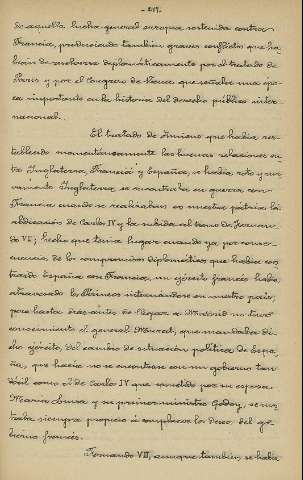 - 219 -
de aquella lucha general europea sostenida contra
Francia, produciendo tambien graves conflictos que ha-
bian de resolverse diplomáticamente por el tratado de
Paris y por el Congreso de Viena que señalan una épo-
ca importante en la historia del derecho público inter-
nacional.
El tratado de Amiens que habia res-
tablecido momentáneamente las buenas relaciones en-
tre Inglaterra, Francia y España, se habia roto y nue-
vamente Inglaterra, se encontraba en guerra con
Francia cuando se realizaban en nuestra pátria la
abdicacion de Carlos IV y la subida al trono de Fernan-
do VII; hecho que tenia lugar cuando ya, por conse-
cuencia de los compromisos diplomáticos que habia con-
traido España con Francia, un ejército francés habia
atravesado los Pirineos internándose en nuestro pais;
pero hasta dias antes de llegar a Madrid no tuvo
conocimiento el general Murat, que mandaba di-
cho ejército, del cambio de situacion politica de Espa-
ña, que hacia no se encontrase con un gobierno tan
débil como el de Carlos IV que sometido por su esposa
Maria Luisa y su primer ministro Godoy, se mos-
traba siempre propicio á complacer los deseos del go-
bierno francés.
Fernando VII, aunque tambien se habia